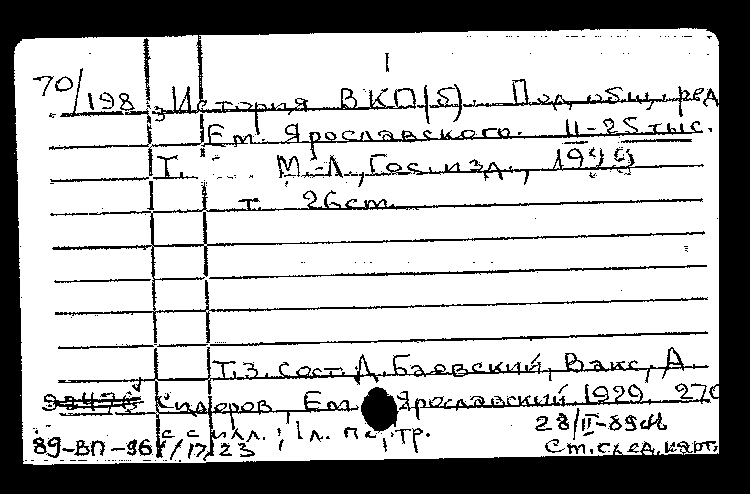 I
70/198з История ВКП(б). Под общ. ред
Ем. Ярославского. II-25 тыс.
Т. М.-Л., Гос. изд., 1929
т. 26 см.
Т.3. Сост. Д. Баевский, Вакс, А.
Сидоров, Ем. Ярославский. 1929. 270
с с илл.; 1 л. портр. 28/II-89
89-ВП-96 1/17/23 Ст. след. карт.